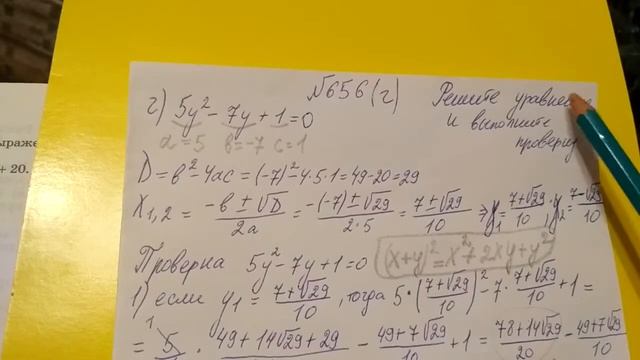 ыраже
+ 20.
№656(г) Решите уравне
и выполните
проверку
г) 5y² - 7y + 1 = 0
a = 5 в = -7 c = 1
D = в² - 4ac = (-7)² - 4·5·1 = 49 - 20 = 29
X₁,₂ = (-в ± √D)/(2a) = (-(-7) ± √29)/(2·5) = (7 ± √29)/10 ⇒ y₁ = (7+√29)/10; y₂ = (7-√29)/10
Проверка 5y² - 7y + 1 = 0 (x+y)² = x² + 2xy + y²
1) если y₁ = (7+√29)/10, тогда 5·((7+√29)/10)² - 7·(7+√29)/10 + 1 =
= 5 · 49 + 14√29 + 29 - (49+7√29)/10 + 1 = (78+14√29)/20 - 49+7√29